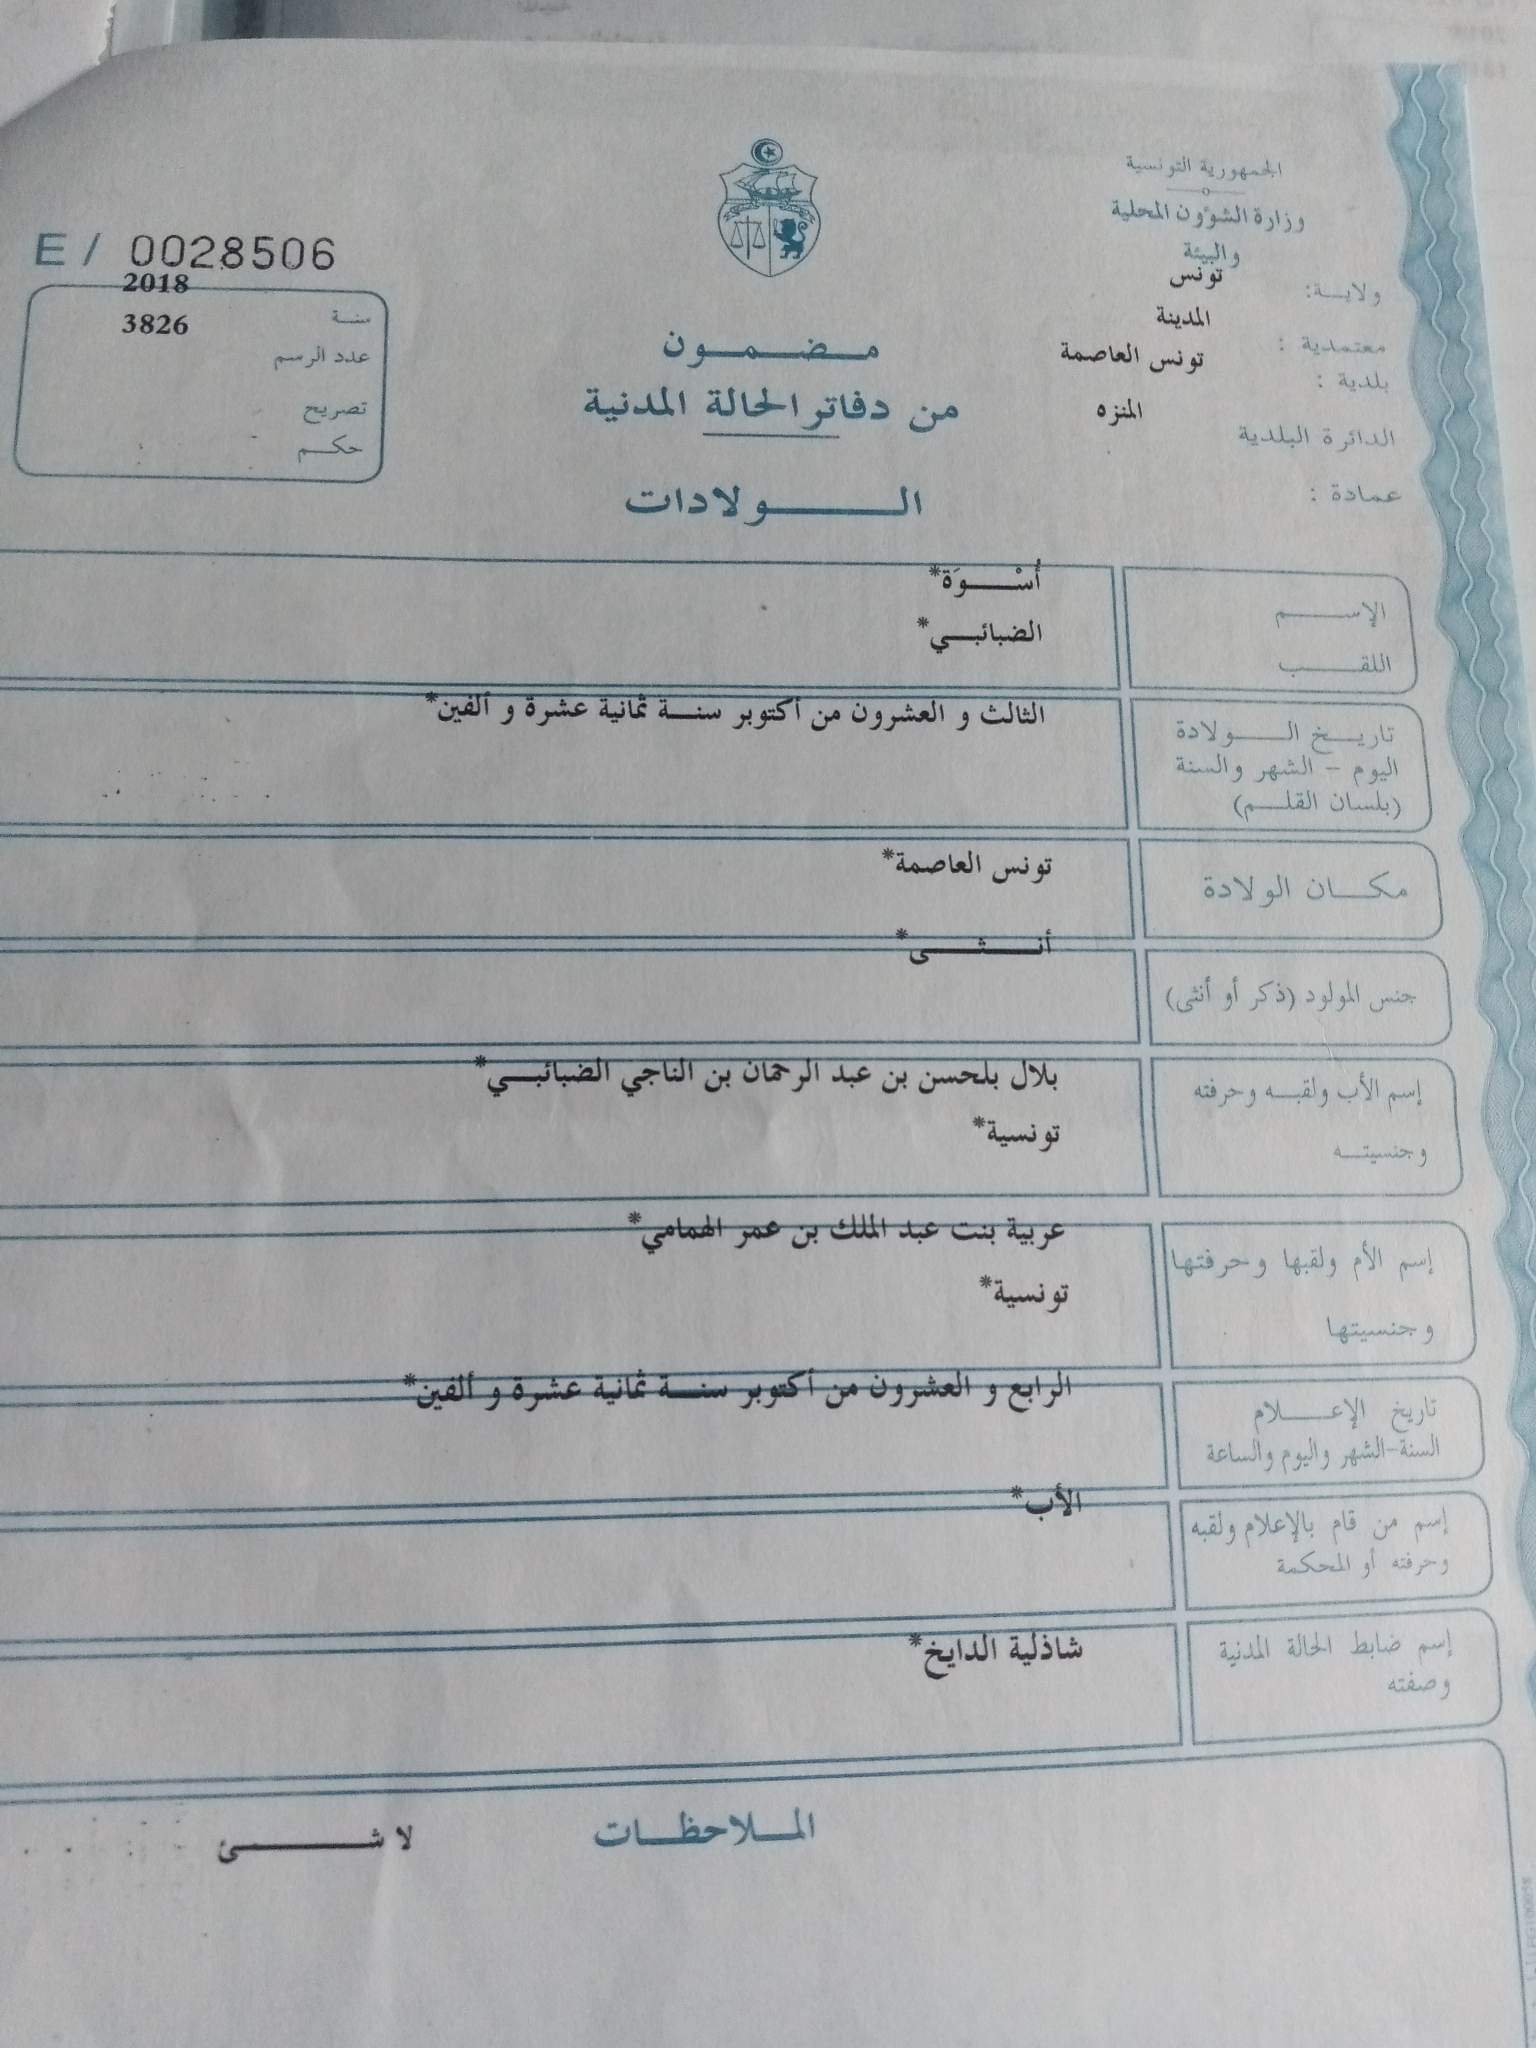 الجمهورية التونسية
وزارة الشؤون المحلية
والبيئة
ولاية: تونس
معتمدية : المدينة
بلدية : تونس العاصمة
الدائرة البلدية المنزه
عمادة :
مضمون
من دفاتر الحالة المدنية
الولادات
E / 0028506
سنة 2018
عدد الرسم 3826
تصريح
حكم
الإسم أُسْوَة*
اللقب الضبائبي*
تاريخ الولادة الثالث و العشرون من أكتوبر سنة ثمانية عشرة و ألفين*
اليوم - الشهر والسنة
(بلسان القلم)
مكان الولادة تونس العاصمة*
جنس المولود (ذكر أو أنثى) أنثى*
إسم الأب ولقبه وحرفته بلال بلحسن بن عبد الرحمان بن الناجي الضبائبي*
وجنسيته تونسية*
إسم الأم ولقبها وحرفتها عربية بنت عبد الملك بن عمر الهمامي*
وجنسيتها تونسية*
تاريخ الإعلام الرابع و العشرون من أكتوبر سنة ثمانية عشرة و ألفين*
السنة-الشهر واليوم والساعة
إسم من قام بالإعلام ولقبه الأب*
وحرفته أو المحكمة
إسم ضابط الحالة المدنية شاذلية الدايخ*
وصفته
الملاحظات
لا شئ